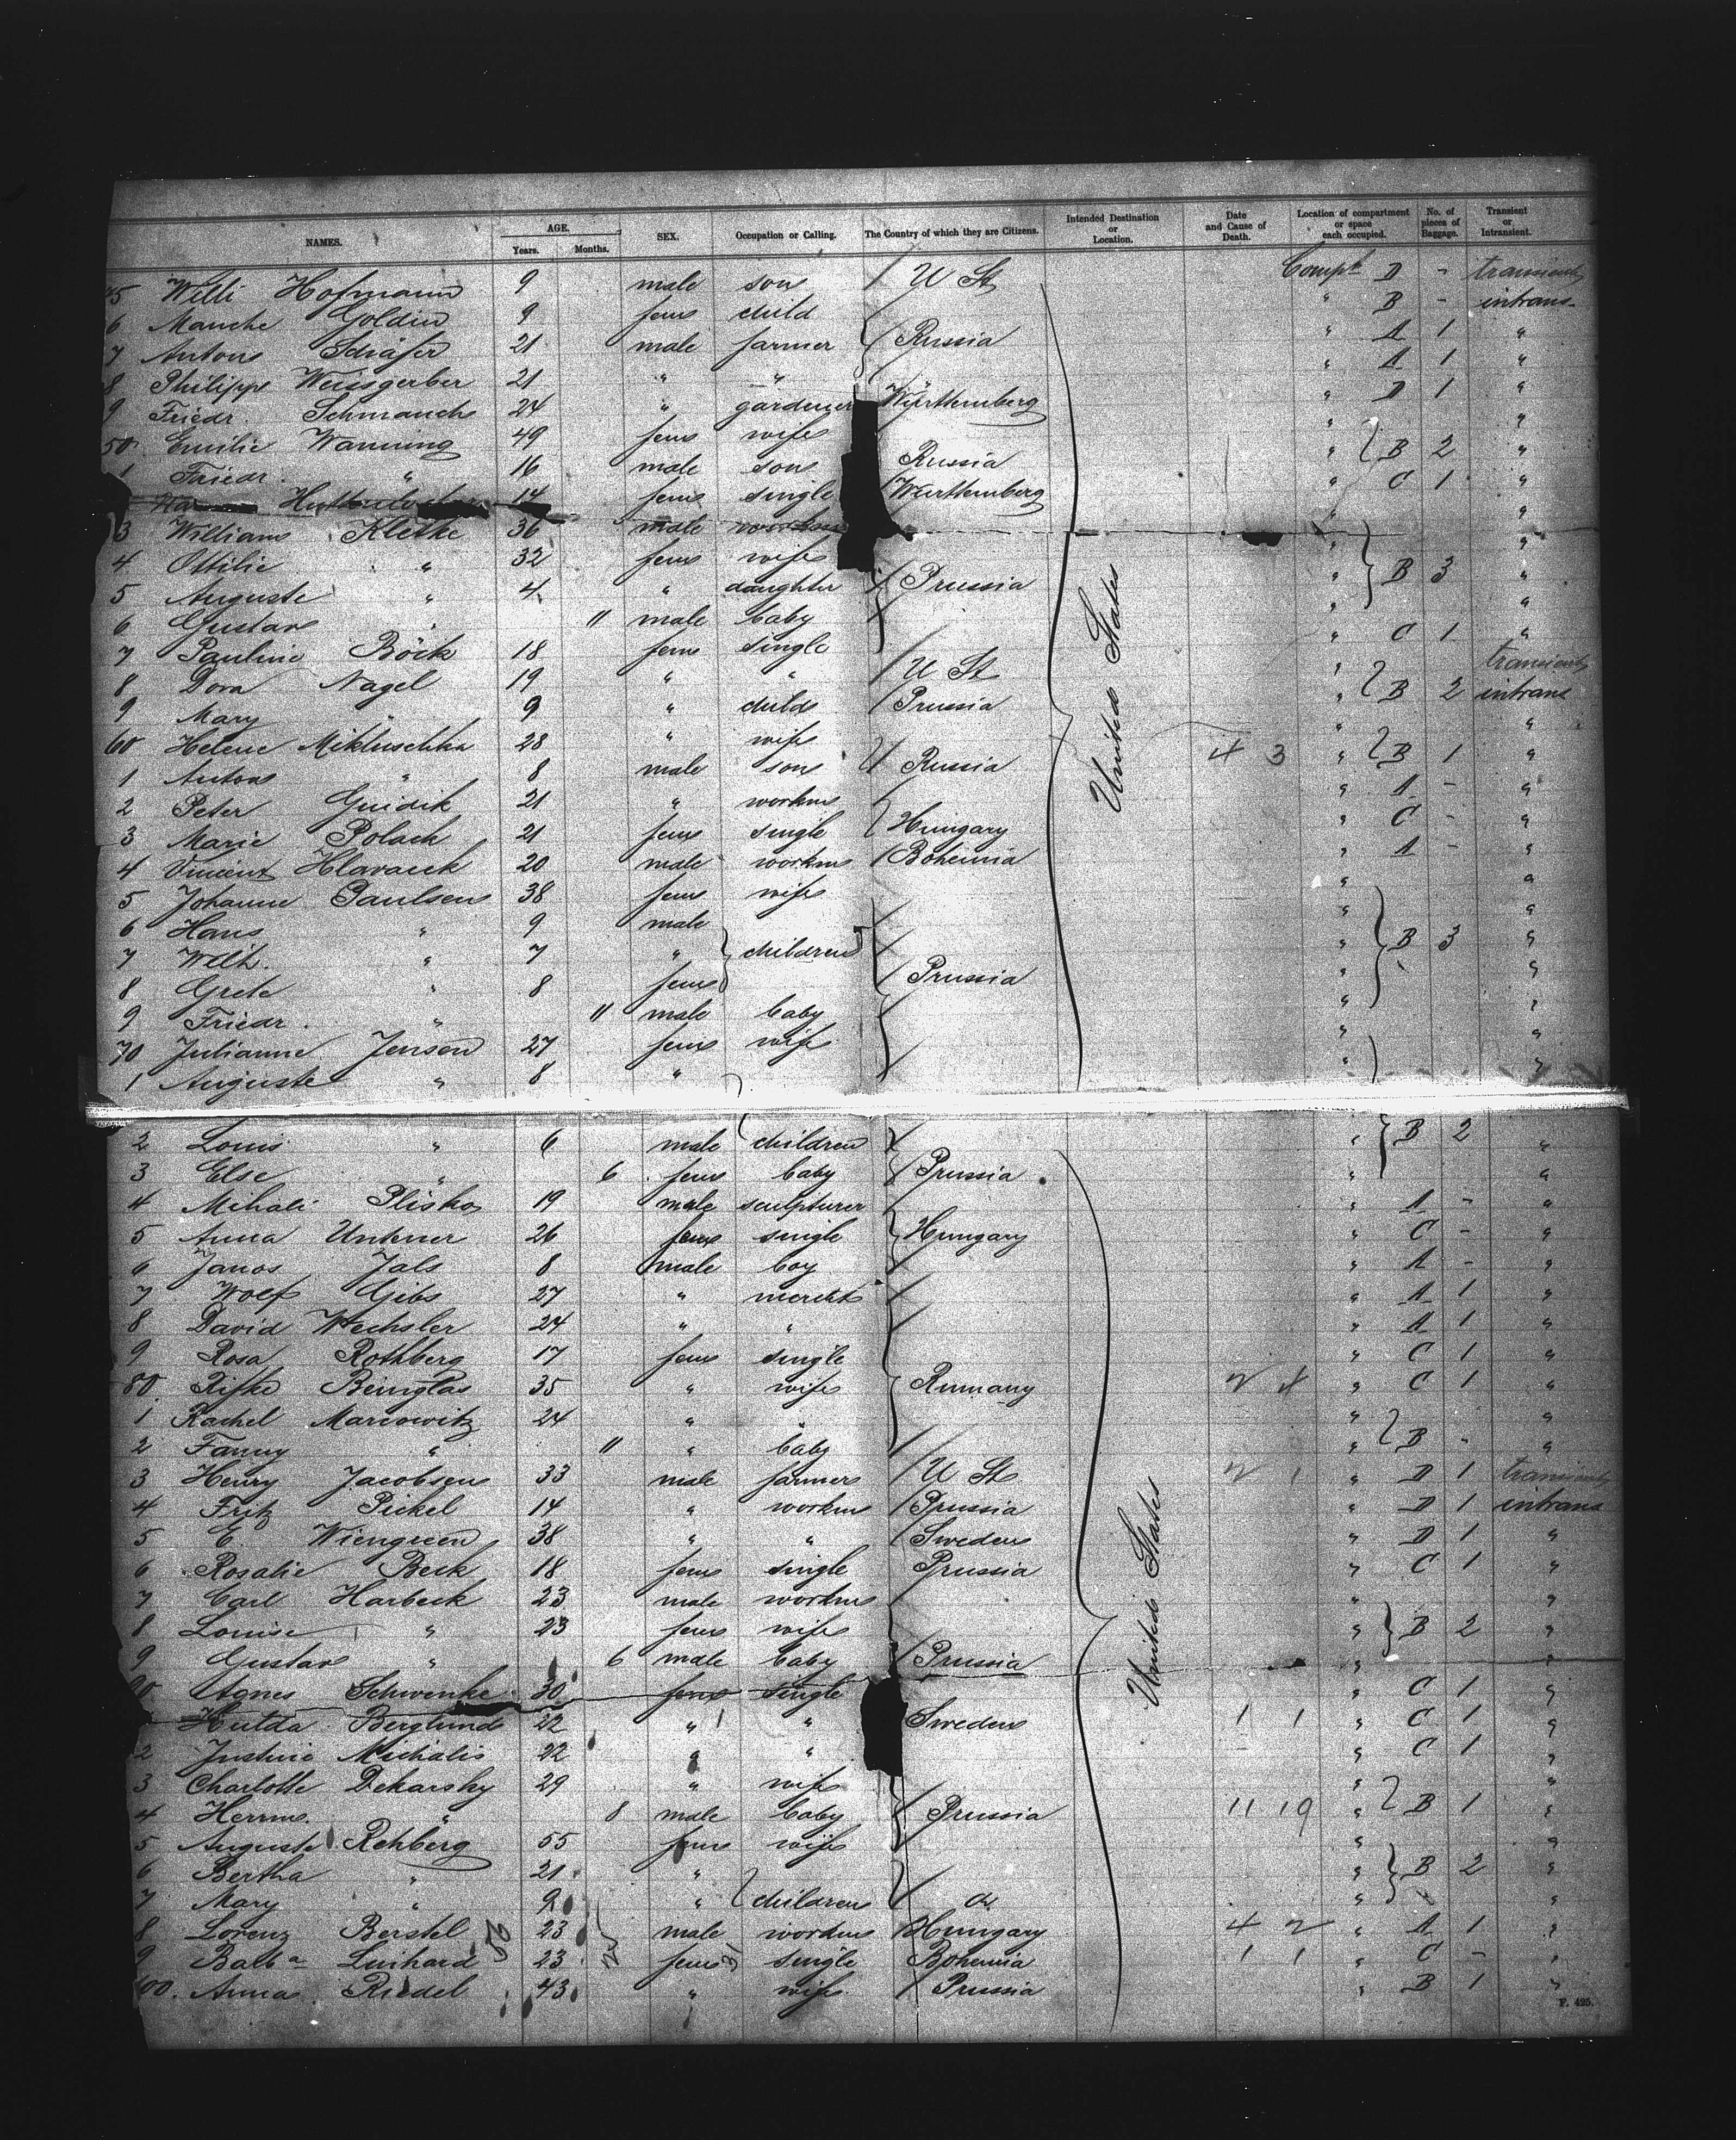 NAMES. AGE. Years. Months. SEX. Occupation or Calling. The Country of which they are Citizens. Intended Destination or Location. Date and Cause of Death. Location of compartment or space each occupied. No. of pieces of Baggage. Transient or Intransient.
45 Willi Hofmann 9 male son U St Compt D - transient
6 Manche Goldin 9 fem child " B - intrans
7 Anton Schäfer 21 male farmer Russia " A 1 "
8 Philipp Weissgerber 21 " " " A 1 "
9 Friedr. Schmauch 24 " gardener Württemberg " D 1 "
50 Emilie Wanning 49 fem wife " "
1 Friedr. " 16 male son Russia " B 2 "
14 fem single Württemberg " C 1 "
3 William Kletke 36 male " "
4 Ottilie " 32 fem wife " "
5 Auguste " 4 " daughter Prussia " B 3 "
6 Gustav " 11 male baby " "
7 Pauline Böck 18 fem single " C 1 "
8 Dora Nagel 19 " " U St " transient
9 Mary " 9 " child Prussia " B 2 intrans
60 Helene Mikluschka 28 " wife " "
1 Anton " 8 male son Russia 4 3 " B 1 "
2 Peter Guidik 21 " workm " A - "
3 Marie Polack 21 fem single Hungary " C - "
4 Vincent Hlavacek 20 male workm Bohemia " A - "
5 Johanne Paulsen 38 fem wife " "
6 Hans " 9 male " "
7 Wilh. " 7 " children " B 3 "
8 Grete " 8 fem Prussia " "
9 Friedr. " 11 male baby " "
70 Julianne Jensen 27 fem wife " "
1 Auguste " 8 " " "
United States
2 Louis " 6 male children " B 2 "
3 Else " 6 fem baby Prussia " "
4 Mihali Plisko 19 male sculpturer " A - "
5 Anna Unterer 26 fem single Hungary " C - "
6 Janos Jals 8 male boy " A - "
7 Wolf Gibs 27 " mercht " A 1 "
8 David Wechsler 24 " " " A 1 "
9 Rosa Rothberg 17 fem single " C 1 "
80 Rifke Beinglas 35 " wife Rumany " C 1 "
1 Rachel Marcowitz 24 " " " "
2 Fanny " 11 " baby " B - "
3 Henry Jacobsen 33 male farmer U St " D 1 transient
4 Fritz Pickel 14 " workm Prussia " D 1 intrans
5 E. Wiengreen 38 " " Sweden " D 1 "
6 Rosalie Beck 18 fem single Prussia " C 1 "
7 Carl Harbeck 23 male workm " "
8 Louise " 23 fem wife " B 2 "
9 Gustav " 6 male baby Prussia " "
90 Agnes Schwenke 30 fem single " C 1 "
Hulda Berglund 22 " " Sweden 1 1 " C 1 "
2 Justine Michalis 22 " " " C 1 "
3 Charlotte Dekarsky 29 " wife " "
4 Herrm. " 8 male baby Prussia 11 19 " B 1 "
5 Auguste Rehberg 55 fem wife " "
6 Bertha " 21 " " B 2 "
7 Mary " 9 " children do. " "
8 Lorenz Berstel 23 male workm Hungary 4 2 " A 1 "
9 Barba Linhard 23 fem single Bohemia 1 1 " C - "
100. Anna Riedel 43 " wife Prussia " B 1 "
United States
F. 495.